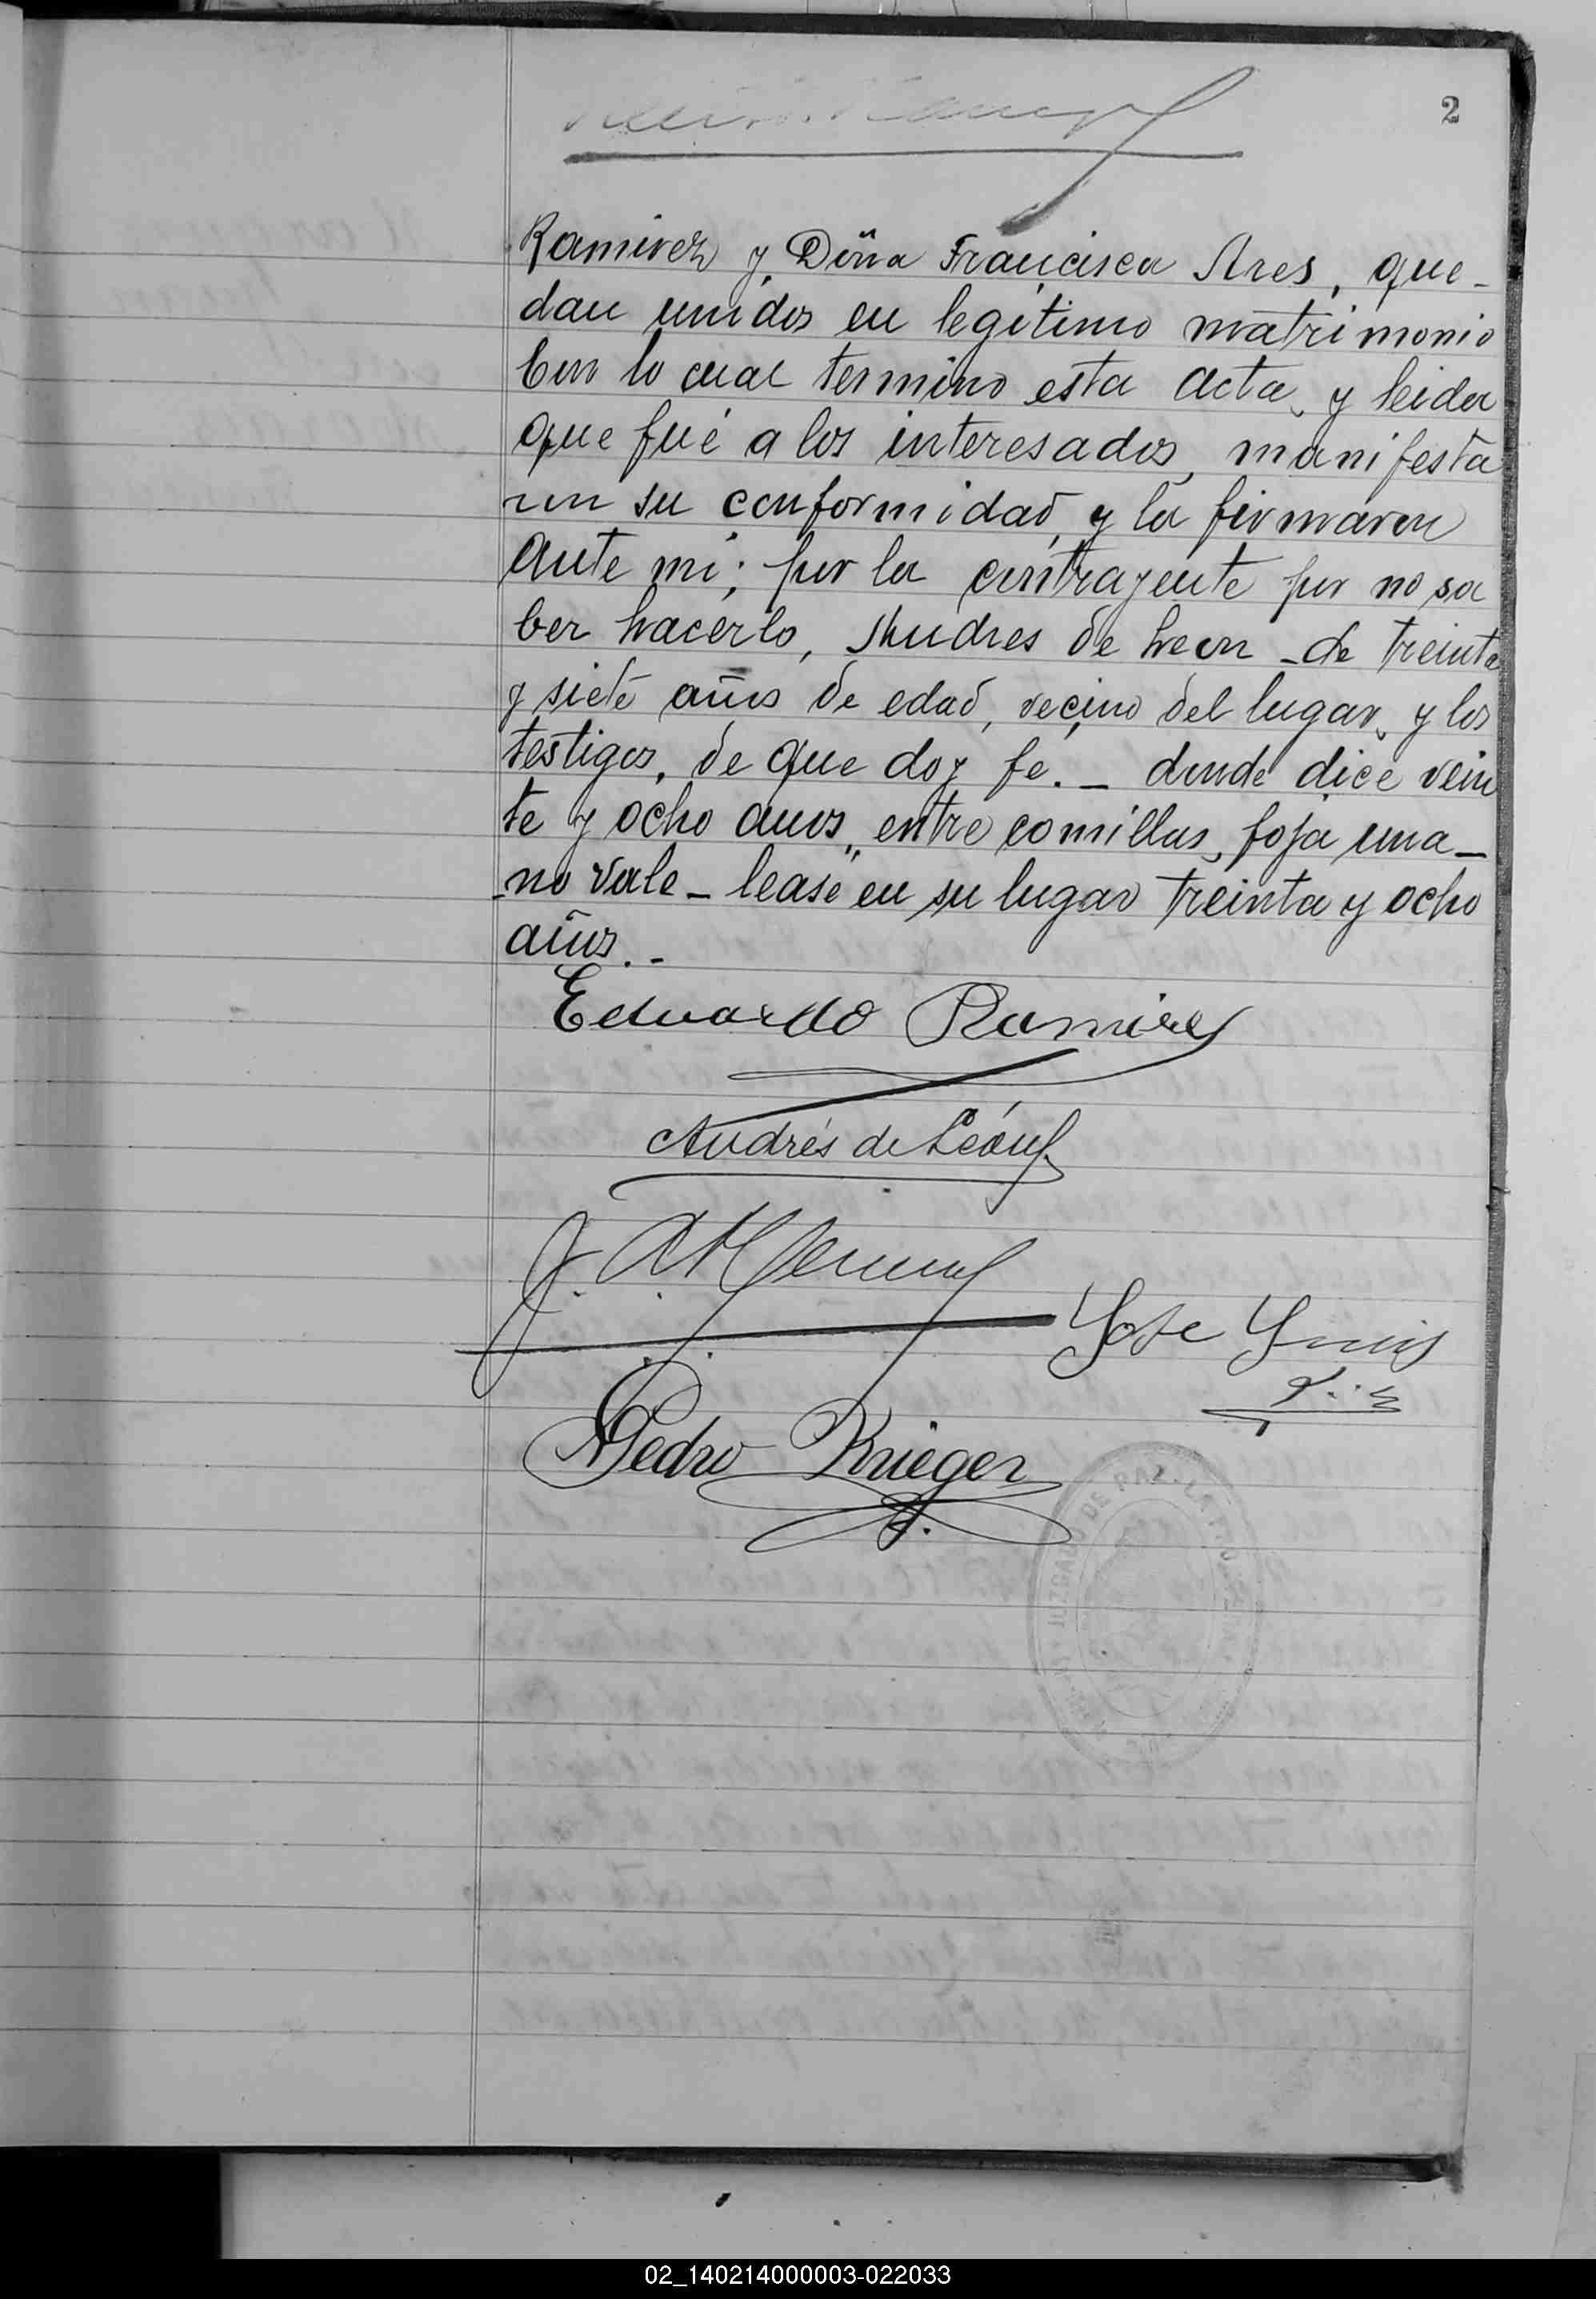 2
Ramirez y Doña Francisca Ares, que-
dan unidos en legitimo matrimonio
Con lo cual termino esta acta, y leida
que fué a los interesados, manifesta
ron su conformidad, y la firmaron
ante mi; por la contrayente por no sa
ber hacerlo, Andres de Leon - de treinta
y siete años de edad, vecino del lugar, y los
testigos, de que doy fe. - donde dice vein
te y ocho anos, entre comillas, foja una -
- no vale - lease en su lugar treinta y ocho
años. -
Eduardo Ramirez
Andrés de León
J. A.
Jose
Pedro Krieger
JUZGADO DE PAZ
02_140214000003-022033